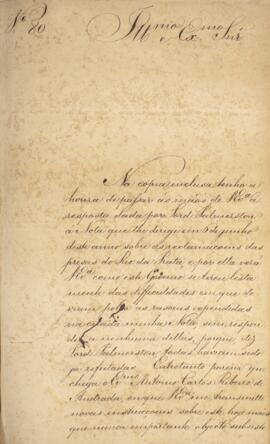 Nº 80
Illmo e Exmo Snr
Na copia inclusa tenho a
honra de passar as mãos de V Exa a
resposta dada por Lord Palmerston
á Nota que lhe dirigi em 5 de Junho
deste anno sobre as reclamaçoens das
prezas do Rio da Prata e por ella verá
V Exa como este Governo
mente das difficuldades em que de
as rasoens expendidas
minha Nota sem respon
der a nenhuma dellas, porque diz
Lord Palmerston todas havião sido
ja refutadas. Entretanto porem que
chega o Antonio Carlos Ribeiro de
Andrada, em que V Exa me transmitte
novas instrucçoens sobre este hoje mais
que nunca importante objecto